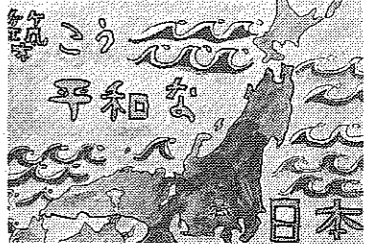 築こう
平和な
日本